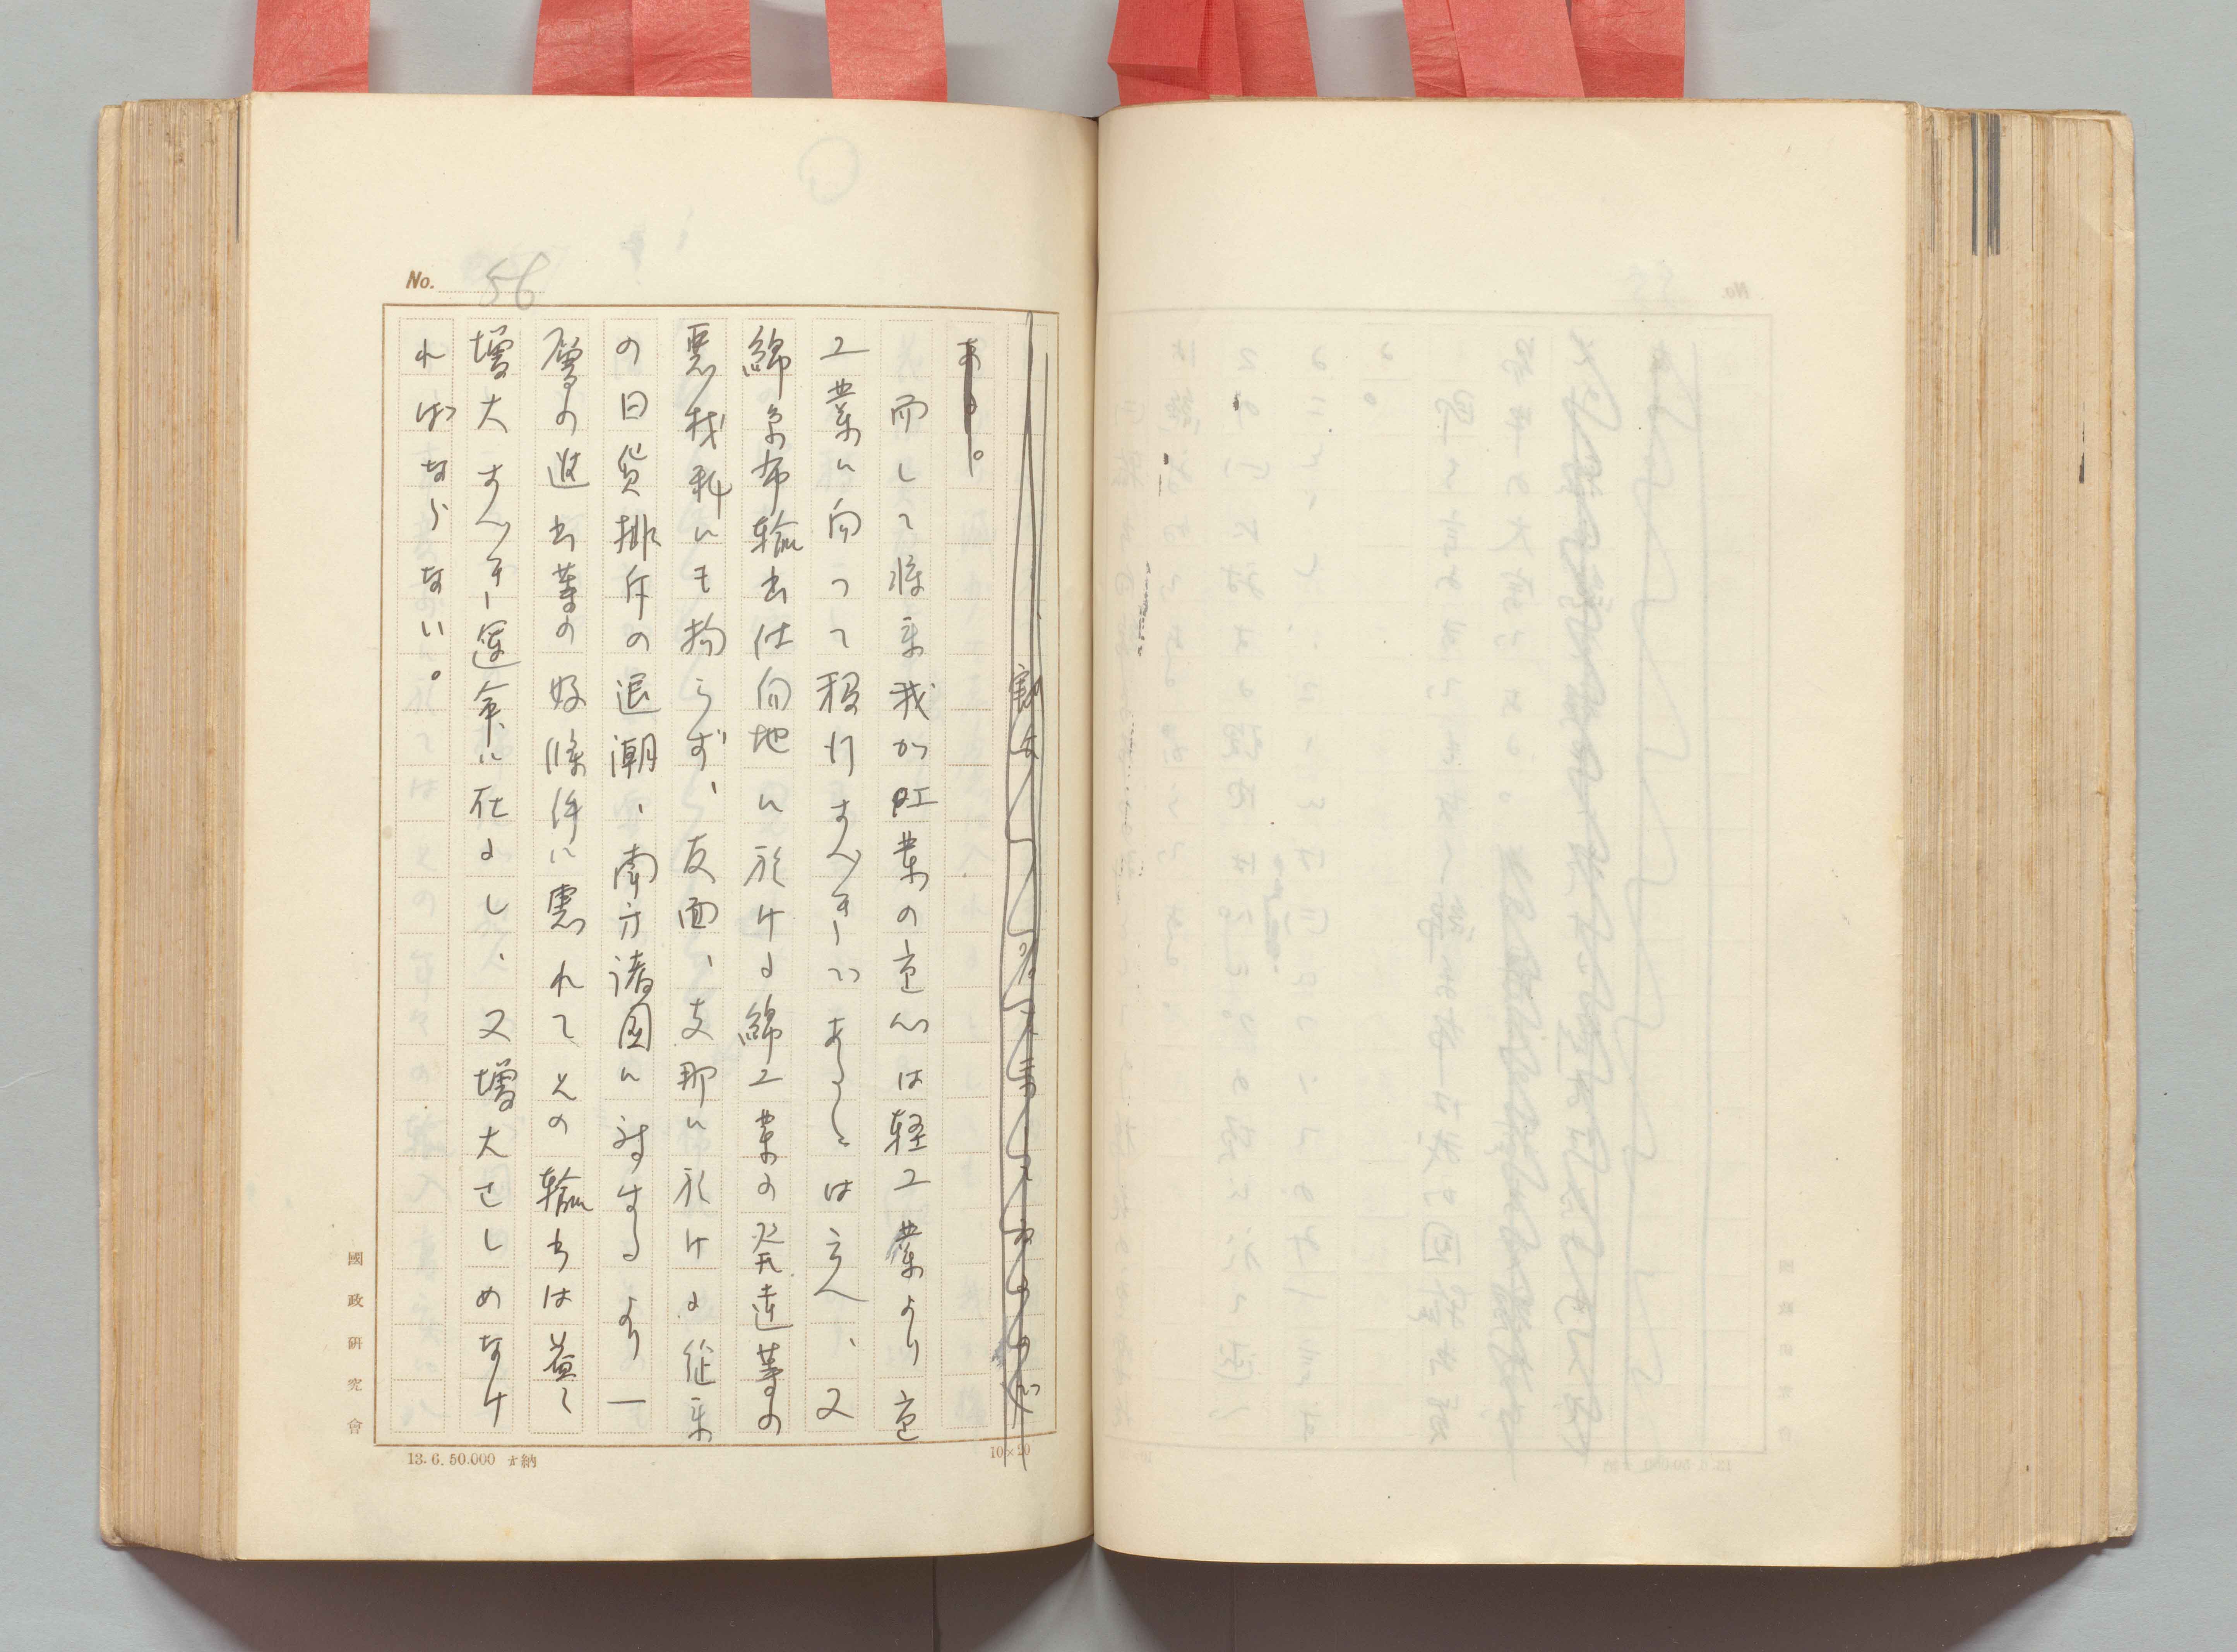 No. 56
ある。
而して将来我が工業の重心は軽工業より重
工業に向つて移行すべきであることは言へ、又
綿糸布輸出仕向地に於ける綿工業の発達等の
悪材料にも拘らず、反面、支那に於ける従来
の日貨排斥の退潮、南方諸国に対するより一
層の進出等の好條件に恵れてその輸出は益々
増大すべき運命に在るし、又増大さしめなけ
ればならない。
國政研究會
13.6.50.000 納
10×20